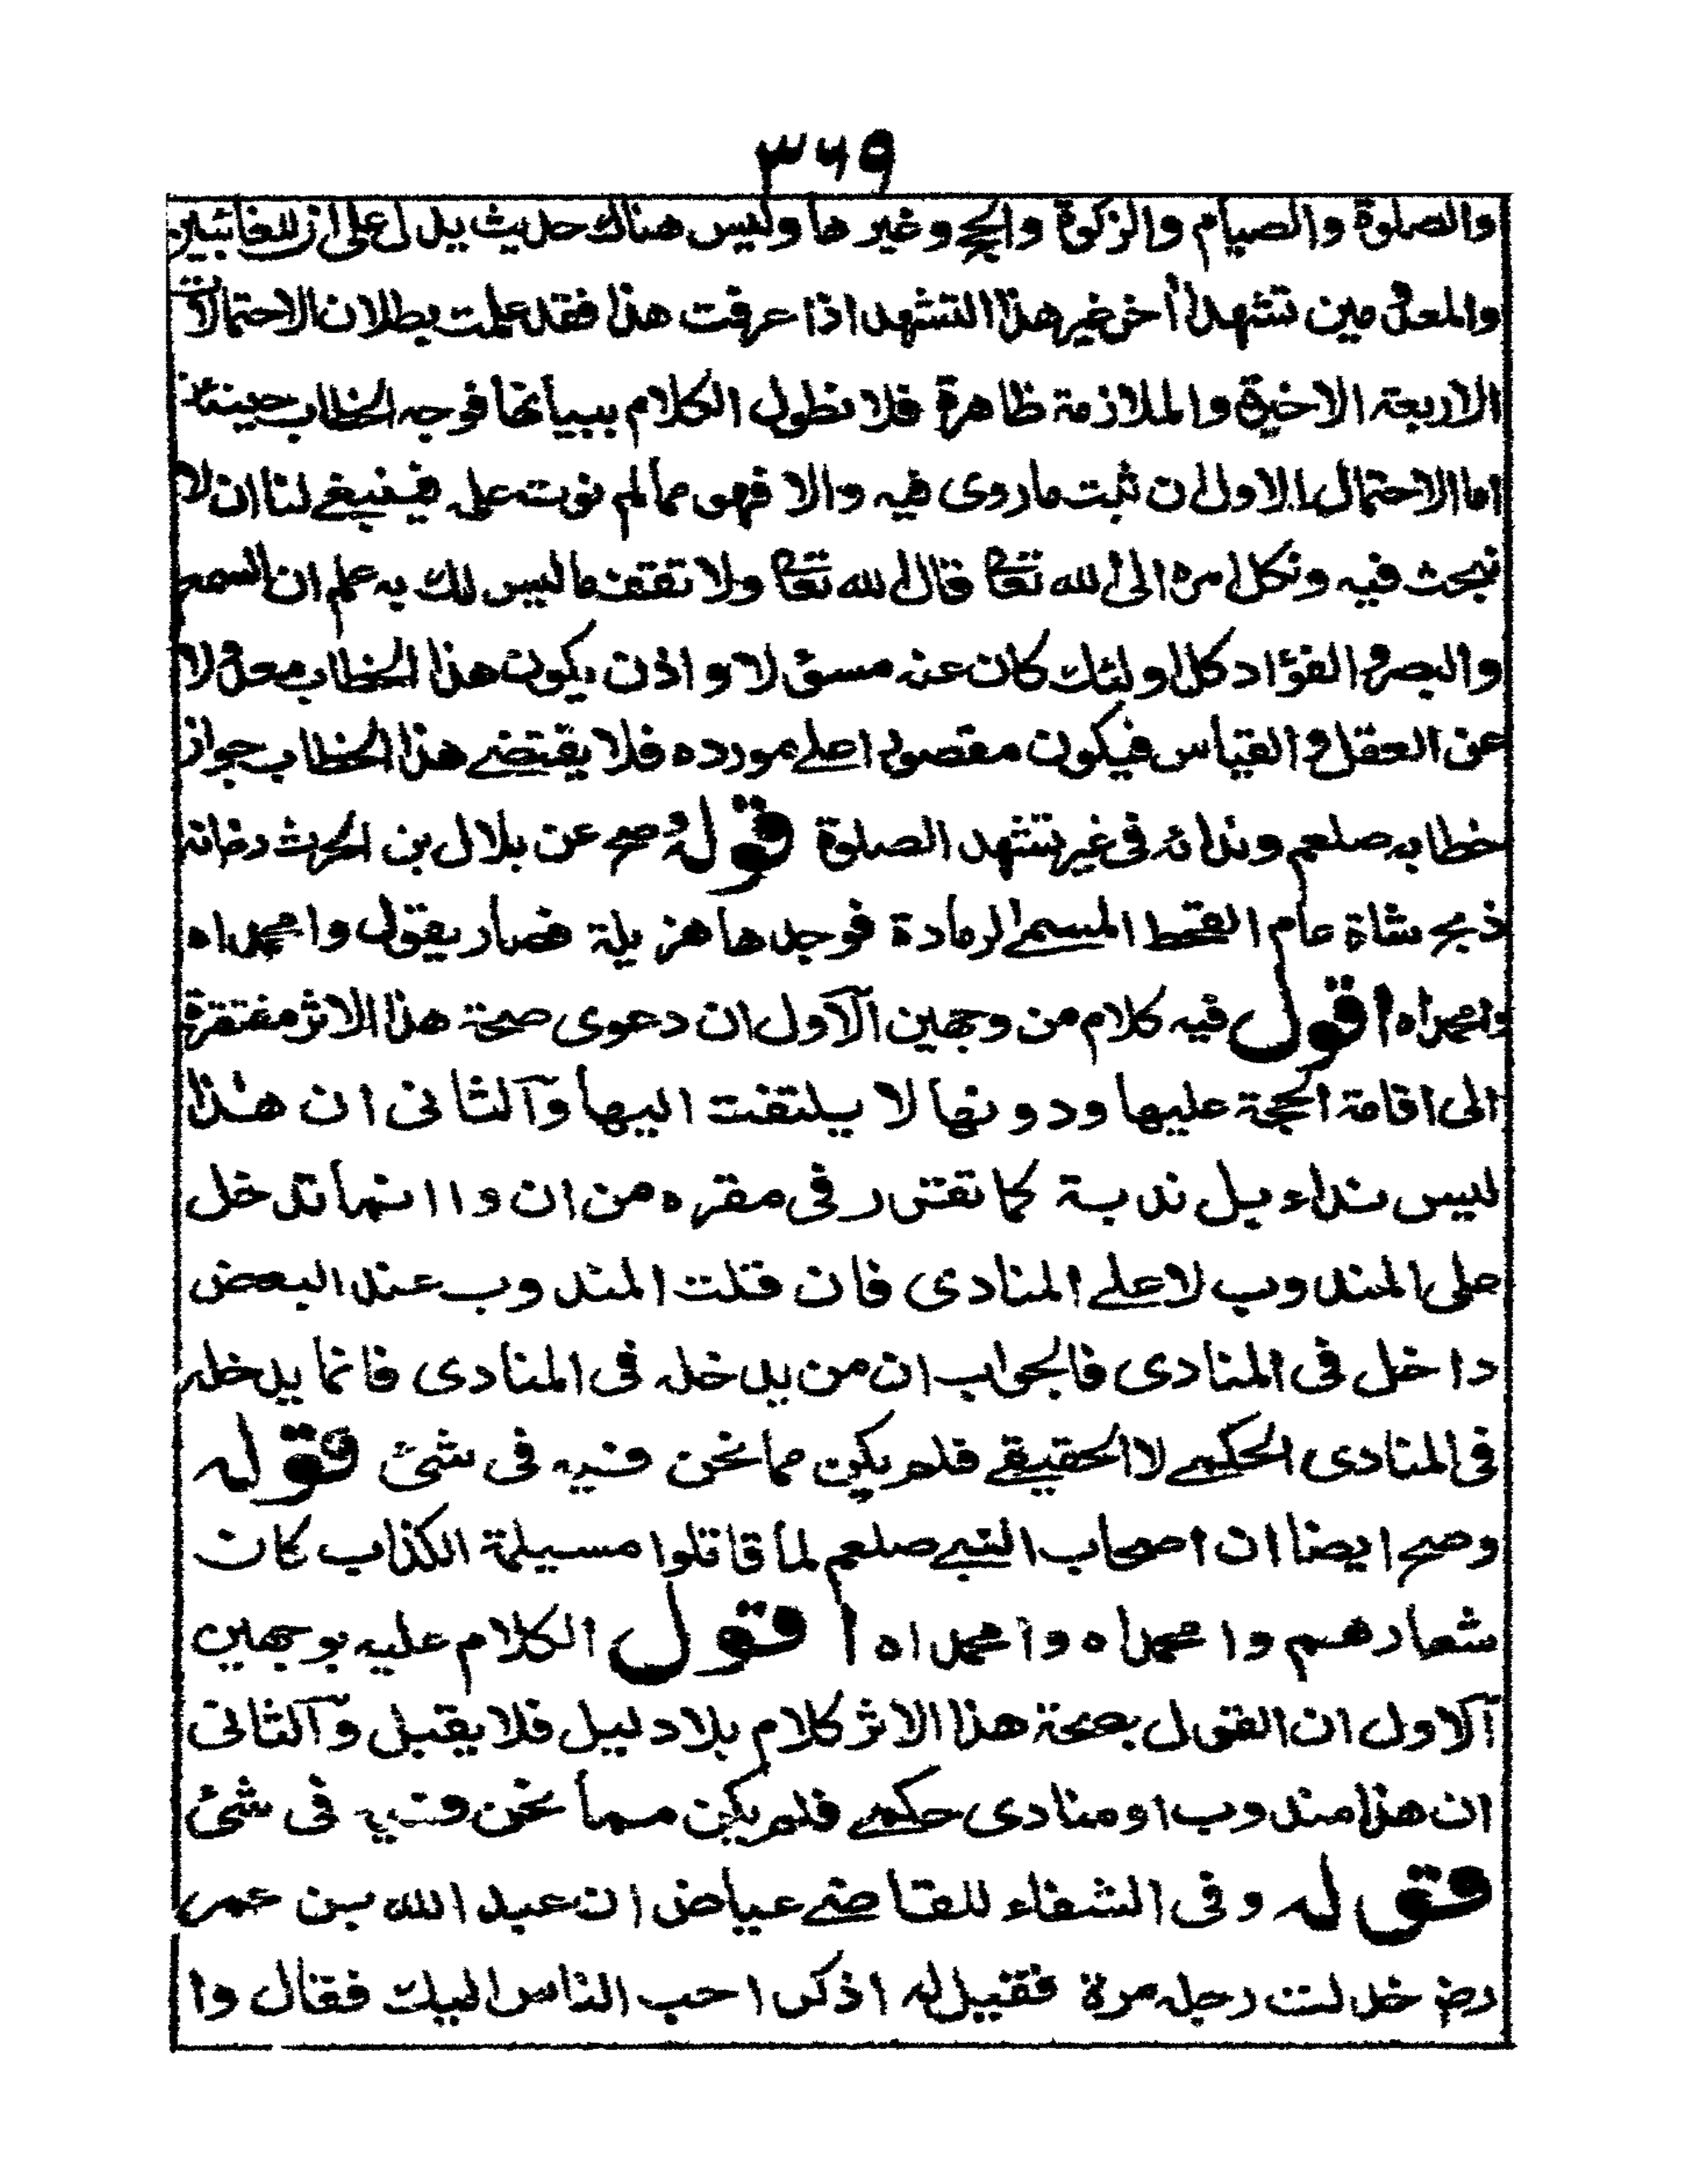 ۳۶۹
والصلوة والصيام والزكوة والحج وغير ها وليس هناك حديث يدل على ان للغائبين
والمعدومين تشهدا أخر غير هذا التشهد اذا عرفت هذا فقد علمت بطلان الاحتمالات
الاربعة الاخيرة والملازمة ظاهرة فلا نطول الكلام ببيانها فوجه الخطاب حينئذ
اما الاحتمال الاول ان ثبت ما روى فيه والا فهو مما لم نوت علمه فينبغى لنا ان لا
نبحث فيه ونكل امره الى الله تعالى قال الله تعالى ولا تقف ما ليس لك به علم ان السمع
والبصر والفؤاد كل اولئك كان عنه مسؤلا واذن يكون هذا الخطاب معدولا
عن العقل والقياس فيكون مقصورا على مورده فلا يقتضى هذا الخطاب جواز
خطابه صلعم وندائه فى غير تشهد الصلوة قوله وصح عن بلال بن الحرث رض انه
ذبح شاة عام القحط المسمى الرمادة فوجدها هزيلة فصار يقول وا محمداه
وا محمداه اقول فيه كلام من وجهين الاول ان دعوى صحة هذا الاثر مفتقرة
الى اقامة الحجة عليها ودونها لا يلتفت اليها والثانى ان هذا
ليس نداء بل ندبة كما تقرر فى مقره من ان وا انما تدخل
على المندوب لا على المنادى فان قلت المندوب عند البعض
داخل فى المنادى فالجواب ان من يدخله فى المنادى فانما يدخله
فى المنادى الحكمى لا الحقيقى فلم يكن مما نحن فيه فى شئ قوله
وصح ايضا ان اصحاب النبى صلعم لما قاتلوا مسيلمة الكذاب كان
شعارهم وا محمداه وا محمداه اقول الكلام عليه بوجهين
الاول ان القول بصحة هذا الاثر كلام بلا دليل فلا يقبل والثانى
ان هذا مندوب او منادى حكمى فلم يكن مما نحن فيه فى شئ
قوله وفى الشفاء للقاضى عياض ان عبد الله بن عمر
رض خدلت رجله مرة فقيل له اذكر احب الناس اليك فقال وا